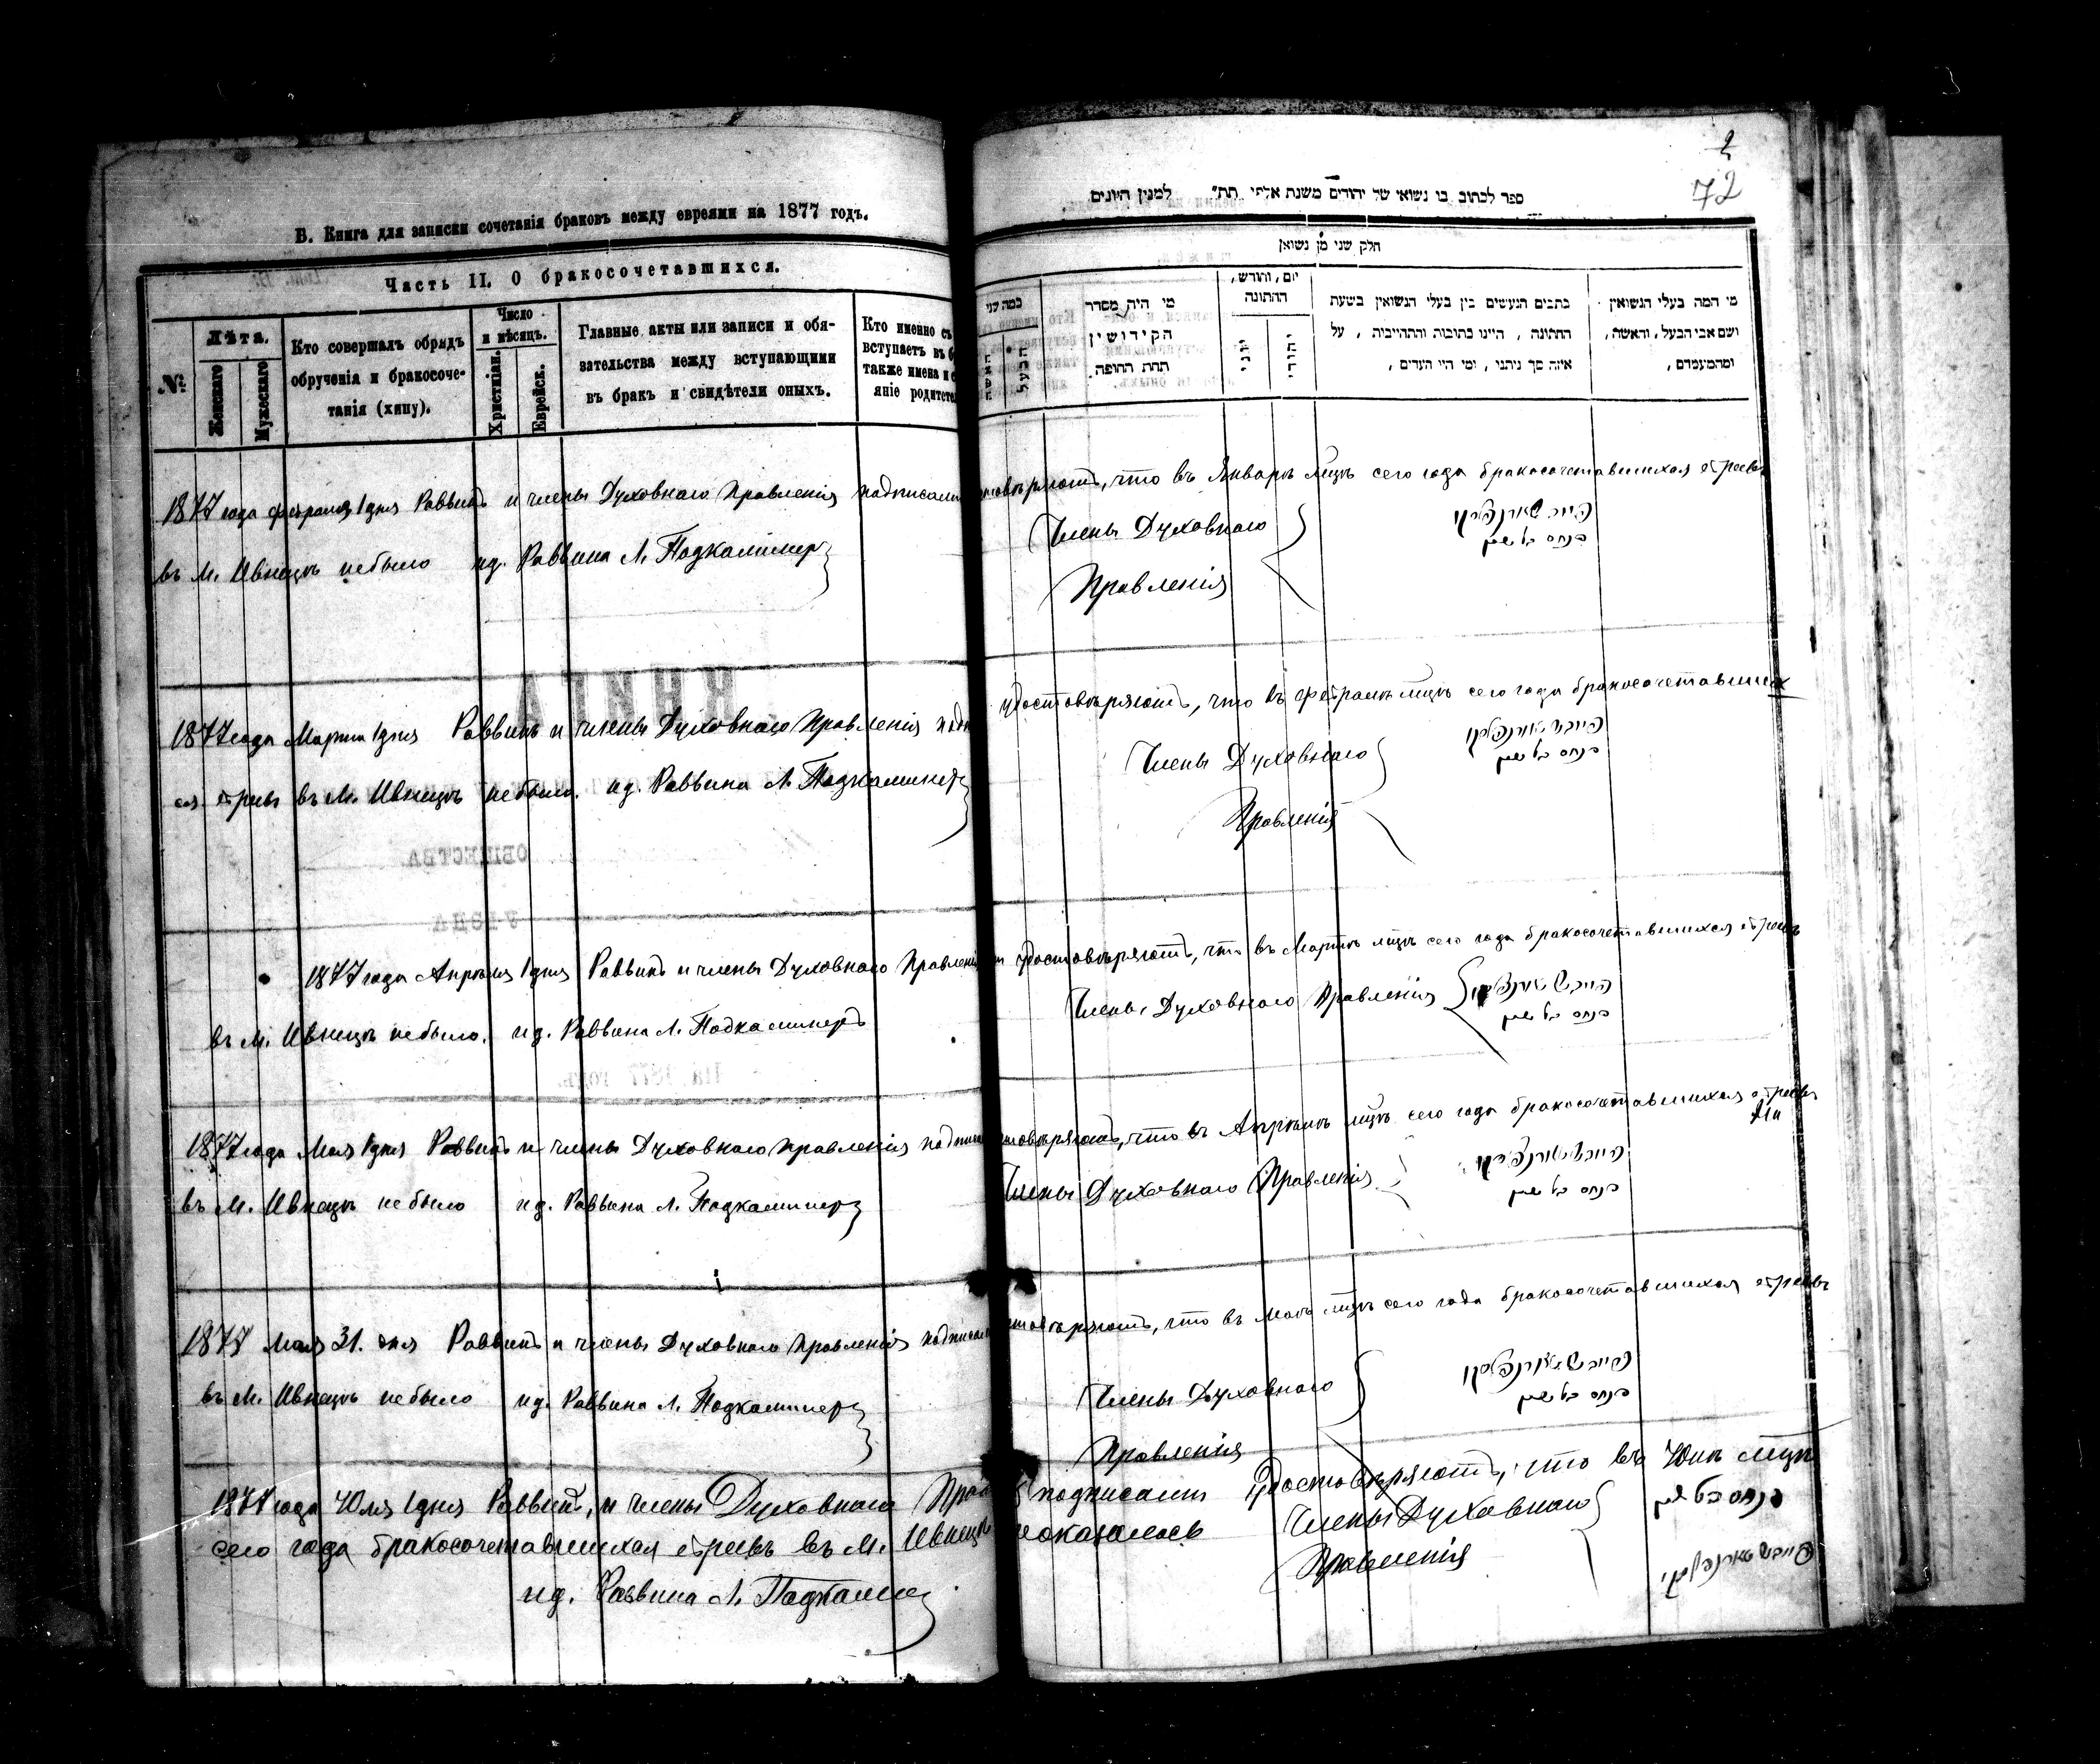 В. Книга для записки сочетанія браковъ между евреями на 1877 годъ.
Часть II. О бракосочетавшихся.
№
Лѣта.
Женскаго
Мужескаго
Кто совершалъ обрядъ
обрученія и бракосоче-
танія (хипу).
Число
и мѣсяцъ.
Христіан.
Еврейск.
Главные акты или записи и обя-
зательства между вступающими
въ бракъ и свидѣтели оныхъ.
Кто именно съ
вступаетъ въ б
также имена и
яніе родите
2
72
ספר לכתוב בו נשואי של יהודים משנת אלפי תת״ למנין היונים
חלק שני מן נשואין
מי המה בעלי הנשואין
ושם אבי הבעל, והאשה,
ומהמעמדם,
כתבים הנעשים בין בעלי הנשואין בשעת
החתונה, היינו כתובות והתחייבות, על
איזה סך ניתנו, ומי היו העדים,
יום, וחודש,
החתונה
יהודי
יוני
מי היה מסדר
הקידושין
תחת החופה.
כמה שני
הבעל
האשה
1877 года февраля 1 дня Раввинъ и члены Духовнаго Правленія подписали удостовѣряютъ, что въ Январѣ мцѣ сего года бракосочетавшихся евреевъ
въ м. Ивницѣ небыло ид. Раввина Л. Подкаминеръ
Члены Духовнаго
Правленія
1877 года Марта 1 дня Раввинъ и члены Духовнаго Правленія удостовѣряютъ, что въ февралѣ мцѣ сего года бракосочетавших
ся евреевъ въ м. Ивницѣ небыло. ид. Раввина Л. Подкаминеръ
Члены Духовнаго
Правленія
1877 года Апрѣля 1 дня Раввинъ и члены Духовнаго Правленія удостовѣряютъ, что въ Мартѣ мцѣ сего года бракосочетавшихся евреевъ
въ м. Ивницѣ небыло. ид. Раввина Л. Подкаминеръ
Члены Духовнаго Правленія
1877 года Мая 1 дня Раввинъ и члены Духовнаго Правленія удостовѣряютъ, что въ Апрѣлѣ мцѣ сего года бракосочетавшихся евреевъ
въ м. Ивницѣ небыло ид. Раввина Л. Подкаминеръ
Члены Духовнаго Правленія
1877 мая 31. дня Раввинъ и члены Духовнаго Правленія удостовѣряютъ, что въ Маѣ мцѣ сего года бракосочетавшихся евреевъ
въ м. Ивницѣ небыло ид. Раввина Л. Подкаминеръ
Члены Духовнаго
Правленія
1877 года Юля 1 дня Раввинъ, и члены Духовнаго подписали удостовѣряютъ, что въ Юнѣ мцѣ
сего года бракосочетавшихся евреевъ въ м. Ивницѣ неоказалось
Члены Духовнаго
Правленія
ид. Раввина Л. Подкаминер